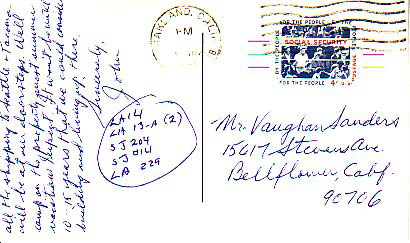 all the shipping to Seattle + Tacoma
will be at our doorsteps. We'll
camp on the property next summer
vacation I expect. It won't be until
10-15 years that we could consider
building and living up there.
Sincerely,
John
LA 14
LA 13-A (2)
SJ 204
SJ 214
LA 229
OAKLAND, CALIF.
PM
FOR THE PEOPLE BY THE
SOCIAL SECURITY
FOR THE PEOPLE
4¢ U.S.
POSTAGE
Mr. Vaughan Sanders
15617 Stevens Ave.
Bellflower, Calif.
90706